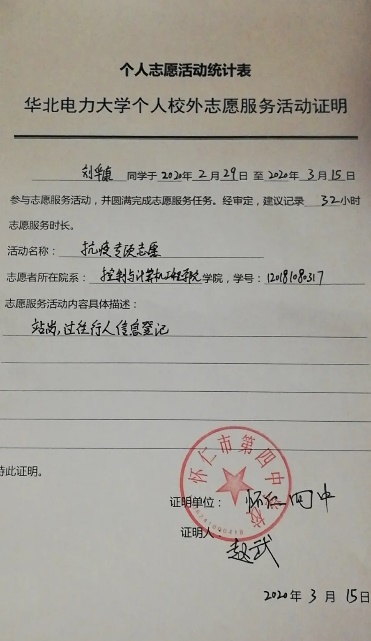 个人志愿活动统计表
华北电力大学个人校外志愿服务活动证明
刘宇慎 同学于 2020年 2月 29日 至 2020年 3月 15日
参与志愿服务活动，并圆满完成志愿服务任务。经审定，建议记录 32小时
志愿服务时长。
活动名称： 抗疫专项志愿
志愿者所在院系： 控制与计算机工程学院 学院，学号： 120181080317
志愿服务活动内容具体描述：
站岗，过往行人信息登记
特此证明。
怀仁市第四中学校
证明单位： 怀仁四中
证明人： 赵武
2020年 3月 15日